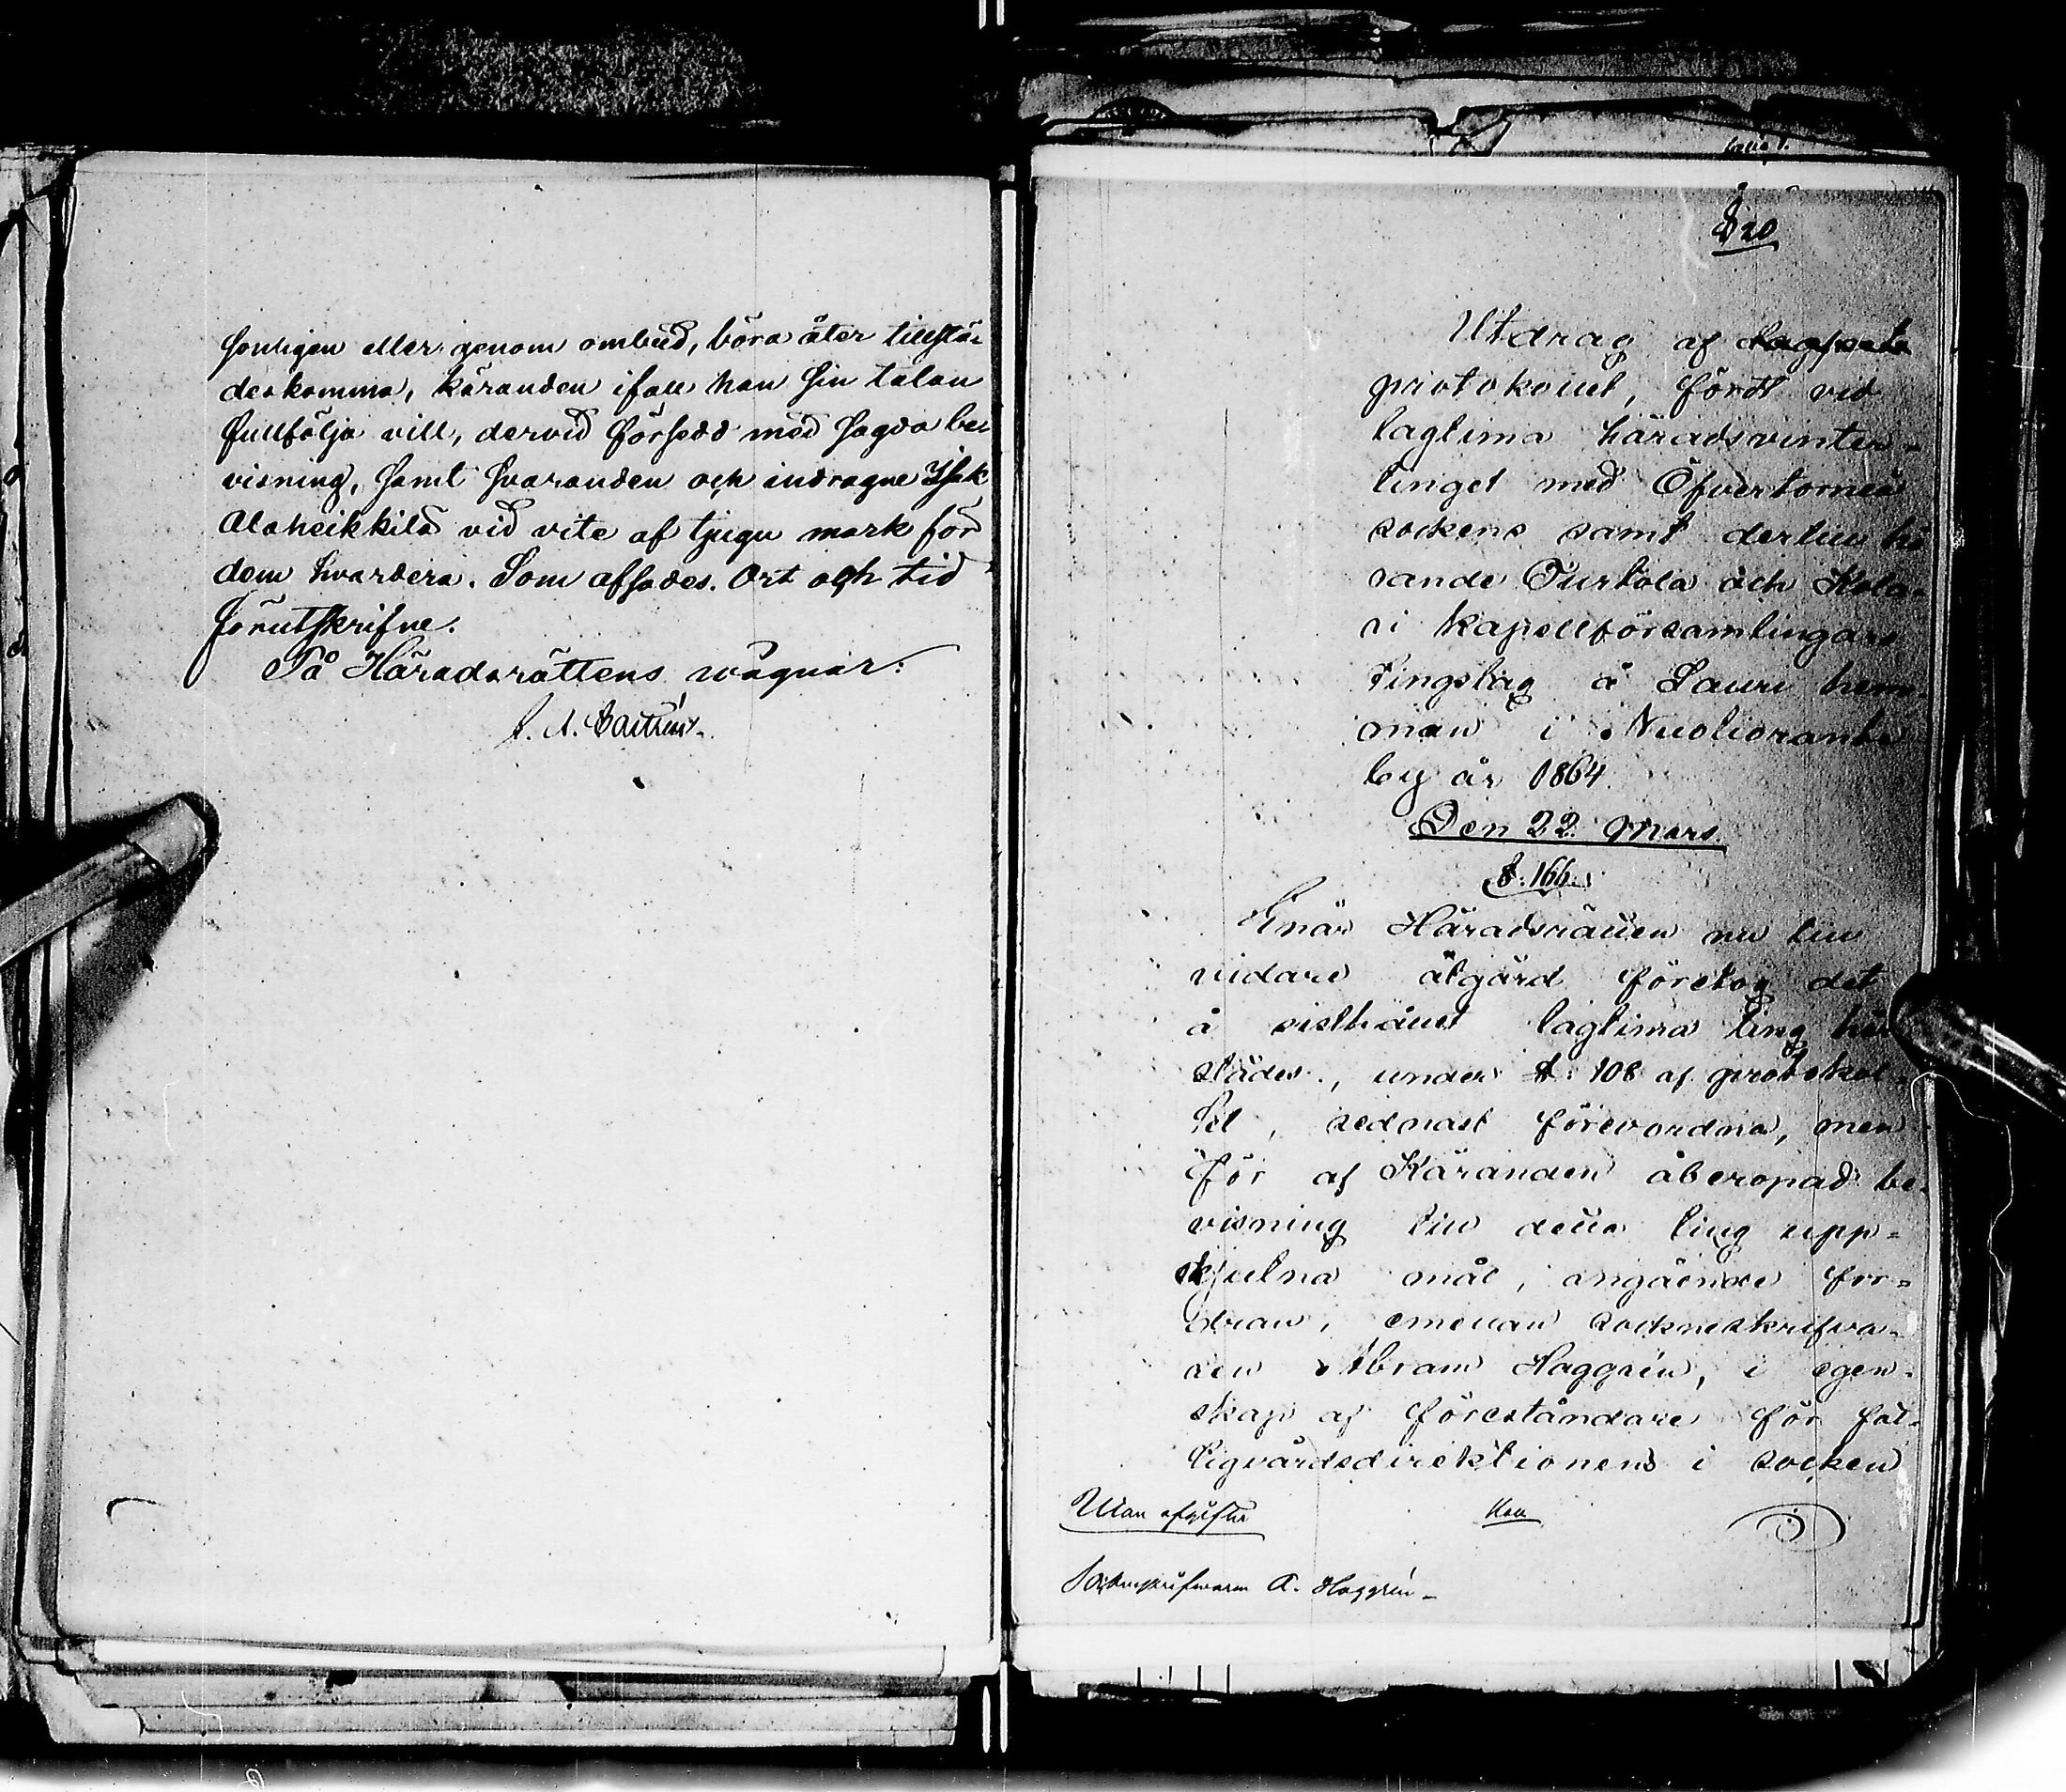 sonligen eller genom ombud, böra åter tillstä-
deskomma, käranden ifall han sin talan
fullfölja vill, dervid försedd med sagda be-
visning, samt svaranden och indragne Isak
Alaheikkilä vid vite af tjugu mark för
dem hvardera. Som afsades. Ort och tid
förutskrifne.
På Häradsrättens vägnar:
§ 20
Utdrag af
protokollet, fördt vid
lagtima häradsvinter-
tinget med Öfvertorneå
sockens samt dertill hö
rande Turtola och Kola-
ri kapellförsamlingars
Tingslag å Lauri hem-
man i Nuolioranta
by år 1864.
Den 22 Mars.
§. 166.
Enär Häradsrätten nu till
vidare åtgärd företog det
å sisthållet lagtima ting här
städes, under §. 108 af protokol-
let, sednast förevordna, men
för af Käranden åberopad be-
visning till detta ting upp-
skjutna mål, angående for-
dran, emellan sockneskrifva-
ren Abram Haggrén, i egen-
skap af föreståndare för fat-
tigvårdsdirektionens i socken
Utan afgifter
Sockneskrifvaren A. Haggrén